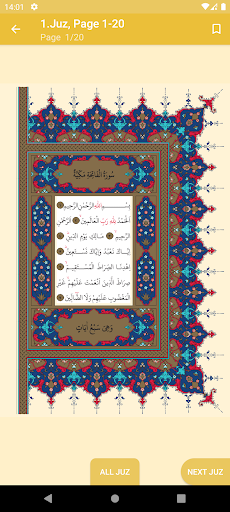 14:01
1.Juz, Page 1-20
Page 1/20
سُورَةُ الْفَاتِحَةِ مَكِّيَّةٌ
بِسْمِ اللهِ الرَّحْمٰنِ الرَّحِيمِ
اَلْحَمْدُ لِلّٰهِ رَبِّ الْعَالَمِينَ اَلرَّحْمٰنِ
الرَّحِيمِ مَالِكِ يَوْمِ الدِّينِ
اِيَّاكَ نَعْبُدُ وَاِيَّاكَ نَسْتَعِينُ
اِهْدِنَا الصِّرَاطَ الْمُسْتَقِيمَ
صِرَاطَ الَّذِينَ اَنْعَمْتَ عَلَيْهِمْ غَيْرِ
الْمَغْضُوبِ عَلَيْهِمْ وَلَا الضَّالِّينَ
وَهِيَ سَبْعُ اٰيَاتٍ
ALL JUZ
NEXT JUZ